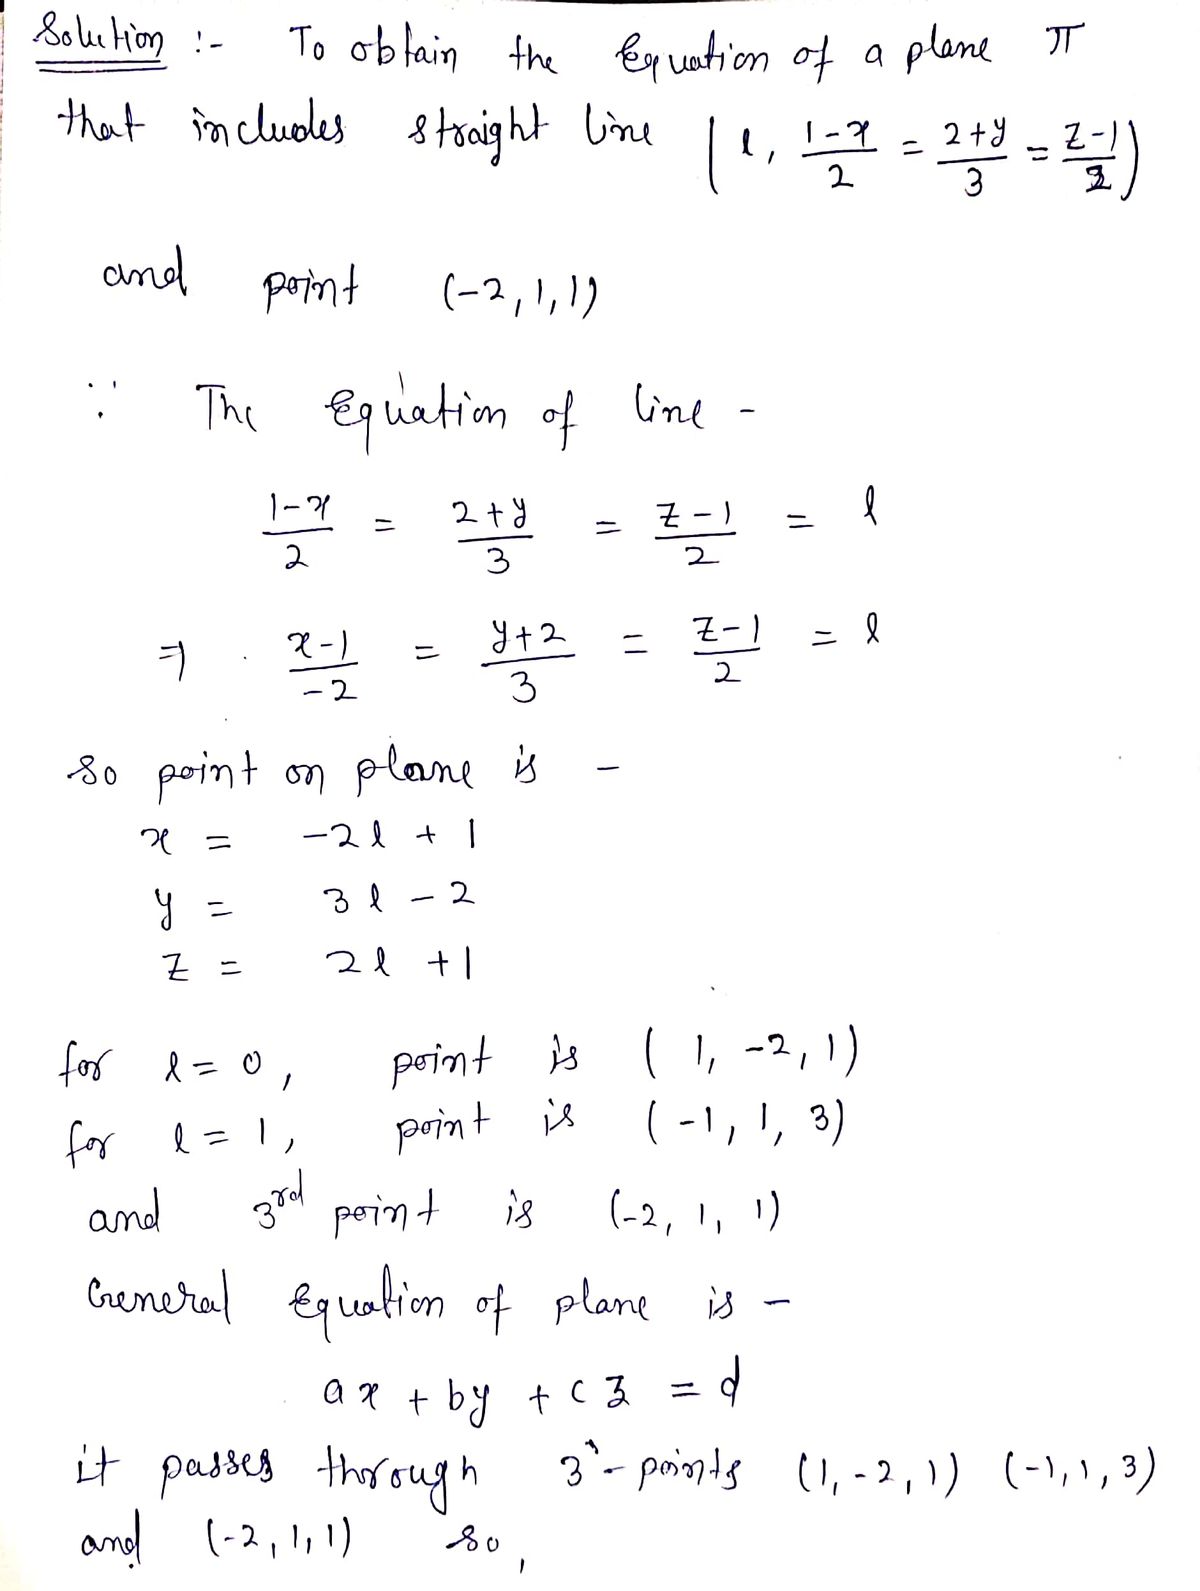 Solution :- To obtain the Equation of a plane π
that includes straight line (l, (1-x)/2 = (2+y)/3 = (z-1)/2)
and point (-2, 1, 1)
∵ The Equation of line -
(1-x)/2 = (2+y)/3 = (z-1)/2 = l
⇒ (x-1)/-2 = (y+2)/3 = (z-1)/2 = l
so point on plane is -
x = -2l + 1
y = 3l - 2
z = 2l + 1
for l = 0, point is (1, -2, 1)
for l = 1, point is (-1, 1, 3)
and 3rd point is (-2, 1, 1)
General Equation of plane is -
ax + by + cz = d
it passes through 3-points (1, -2, 1) (-1, 1, 3)
and (-2, 1, 1) so,